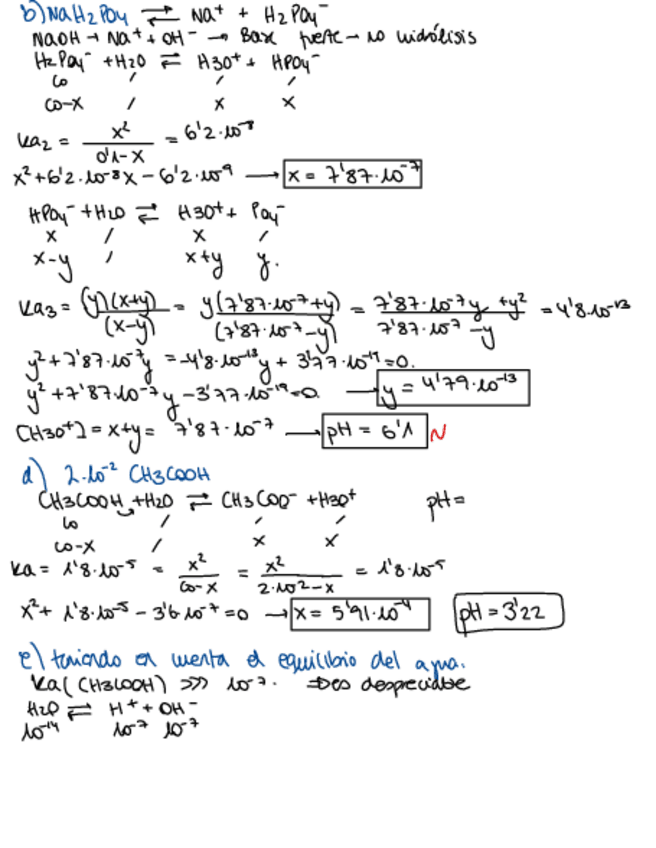 b) NaH2PO4 ⇌ Na+ + H2PO4-
NaOH → Na+ + OH- → Base fuerte → no hidrólisis
H2PO4- + H2O ⇌ H3O+ + HPO4-
Co / / /
Co-x / x x
Ka2 = x²/(0'1-x) = 6'2·10-8
x² + 6'2·10-8x - 6'2·10-9 → x = 7'87·10-7
HPO4- + H2O ⇌ H3O+ + PO4-
x / x /
x-y / x+y y.
Ka3 = (y)(x+y)/(x-y) = y(7'87·10-7+y)/(7'87·10-7-y) = 7'87·10-7y + y²/7'87·10-7-y = 4'8·10-13
y² + 7'87·10-7y = -4'8·10-13y + 3'77·10-19 = 0.
y² + 7'87·10-7y - 3'77·10-19 = 0. → y = 4'79·10-13
[H3O+] = x+y = 7'87·10-7 → pH = 6'1 N
d) 2·10-2 CH3COOH
CH3COOH + H2O ⇌ CH3COO- + H3O+ pH =
Co / / /
Co-x / x x
Ka = 1'8·10-5 = x²/(Co-x) = x²/(2·10²-x) = 1'8·10-5
x² + 1'8·10-5 - 3'6·10-7 = 0 → x = 5'91·10-4 pH = 3'22
e) teniendo en cuenta el equilibrio del agua.
Ka (CH3COOH) >>> 10-7. ⇒ es despreciable
H2O ⇌ H+ + OH-
10-14 10-7 10-7